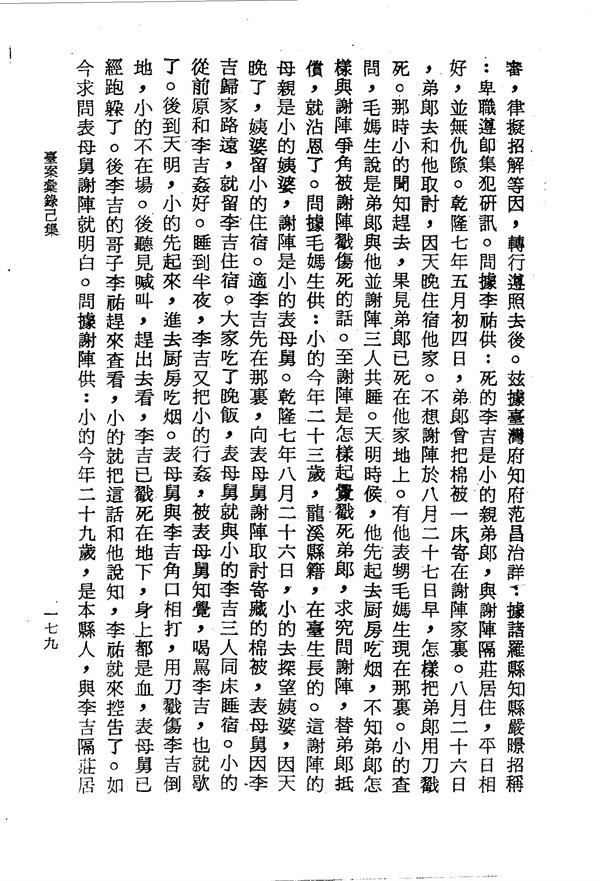 審，律擬招解等因，轉行遵照去後。茲據臺灣府知府范昌治詳：據諸羅縣知縣嚴暻招稱
：卑職遵即集犯研訊。問據李祐供：死的李吉是小的親弟郎，與謝陣隔莊居住，平日相
好，並無仇隙。乾隆七年五月初四日，弟郎曾把棉被一床寄在謝陣家裏。八月二十六日
，弟郎去和他取討，因天晚住宿他家。不想謝陣於八月二十七日早，怎樣把弟郎用刀戳
死。那時小的聞知趕去，果見弟郎已死在他家地上。有他表甥毛媽生現在那裏。小的查
問，毛媽生說是弟郎與他並謝陣三人共睡。天明時候，他先起去厨房吃烟，不知弟郎怎
樣與謝陣爭角被謝陣戳傷死的話。至謝陣是怎樣起釁戳死弟郎，求究問謝陣，替弟郎抵
償，就沾恩了。問據毛媽生供：小的今年二十三歲，龍溪縣籍，在臺生長的。這謝陣的
母親是小的姨婆，謝陣是小的表母舅。乾隆七年八月二十六日，小的去探望姨婆，因天
晚了，姨婆留小的住宿。適李吉先在那裏，向表母舅謝陣取討寄藏的棉被，表母舅因李
吉歸家路遠，就留李吉住宿。大家吃了晚飯，表母舅就與小的李吉三人同床睡宿。小的
從前原和李吉姦好。睡到半夜，李吉又把小的行姦，被表母舅知覺，喝罵李吉，也就歇
了。後到天明，小的先起來，進去厨房吃烟。表母舅與李吉角口相打，用刀戳傷李吉倒
地，小的不在場。後聽見喊叫，趕出去看，李吉已戳死在地下，身上都是血，表母舅已
經跑躲了。後李吉的哥子李祐趕來查看，小的就把這話和他說知，李祐就來控告了。如
今求問表母舅謝陣就明白。問據謝陣供：小的今年二十九歲，是本縣人，與李吉隔莊居
臺案彙錄己集
一七九